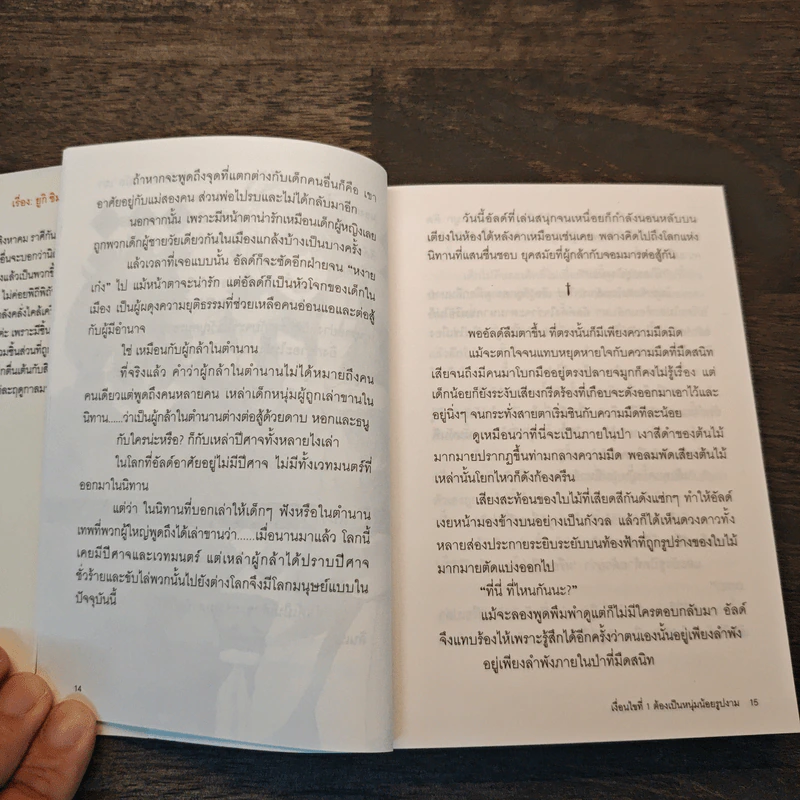 เรื่อง: ยูกิ
ถ้าหากจะพูดถึงจุดที่แตกต่างกับเด็กคนอื่นก็คือ เขา
อาศัยอยู่กับแม่สองคน ส่วนพ่อไปรบและไม่ได้กลับมาอีก
นอกจากนั้น เพราะมีหน้าตาน่ารักเหมือนเด็กผู้หญิงเลย
ถูกพวกเด็กผู้ชายวัยเดียวกันในเมืองแกล้งบ้างเป็นบางครั้ง
แล้วเวลาที่เจอแบบนั้น อัลด์ก็จะซัดอีกฝ่ายจน “หงาย
เก๋ง” ไป แม้หน้าตาจะน่ารัก แต่อัลด์ก็เป็นหัวโจกของเด็กใน
เมือง เป็นผู้ผดุงความยุติธรรมที่ช่วยเหลือคนอ่อนแอและต่อสู้
กับผู้มีอำนาจ
ใช่ เหมือนกับผู้กล้าในตำนาน
ที่จริงแล้ว คำว่าผู้กล้าในตำนานไม่ได้หมายถึงคน
คนเดียวแต่พูดถึงคนหลายคน เหล่าเด็กหนุ่มผู้ถูกเล่าขานใน
นิทาน......ว่าเป็นผู้กล้าในตำนานต่างต่อสู้ด้วยดาบ หอกและธนู
กับใครน่ะหรือ? ก็กับเหล่าปีศาจทั้งหลายไงเล่า
ในโลกที่อัลด์อาศัยอยู่ไม่มีปีศาจ ไม่มีทั้งเวทมนตร์ที่
ออกมาในนิทาน
แต่ว่า ในนิทานที่บอกเล่าให้เด็กๆ ฟังหรือในตำนาน
เทพที่พวกผู้ใหญ่พูดถึงได้เล่าขานว่า......เมื่อนานมาแล้ว โลกนี้
เคยมีปีศาจและเวทมนตร์ แต่เหล่าผู้กล้าได้ปราบปีศาจ
ชั่วร้ายและขับไล่พวกนั้นไปยังต่างโลกจึงมีโลกมนุษย์แบบใน
ปัจจุบันนี้
14
วันนี้อัลด์ที่เล่นสนุกจนเหนื่อยก็กำลังนอนหลับบน
เตียงในห้องใต้หลังคาเหมือนเช่นเคย พลางคิดไปถึงโลกแห่ง
นิทานที่แสนชื่นชอบ ยุคสมัยที่ผู้กล้ากับจอมมารต่อสู้กัน
†
พออัลด์ลืมตาขึ้น ที่ตรงนั้นก็มีเพียงความมืดมิด
แม้จะตกใจจนแทบหยุดหายใจกับความมืดที่มืดสนิท
เสียจนถึงมีคนมาโบกมืออยู่ตรงปลายจมูกก็คงไม่รู้เรื่อง แต่
เด็กน้อยก็ยังระงับเสียงกรีดร้องที่เกือบจะดังออกมาเอาไว้และ
อยู่นิ่งๆ จนกระทั่งสายตาเริ่มชินกับความมืดทีละน้อย
ดูเหมือนว่าที่นี่จะเป็นภายในป่า เงาสีดำของต้นไม้
มากมายปรากฏขึ้นท่ามกลางความมืด พอลมพัดเสียงต้นไม้
เหล่านั้นโยกไหวก็ดังก้องครืน
เสียงสะท้อนของใบไม้ที่เสียดสีกันดังแซ่กๆ ทำให้อัลด์
เงยหน้ามองข้างบนอย่างเป็นกังวล แล้วก็ได้เห็นดวงดาวทั้ง
หลายส่องประกายระยิบระยับบนท้องฟ้าที่ถูกรูปร่างของใบไม้
มากมายตัดแบ่งออกไป
“ที่นี่ ที่ไหนกันนะ?”
แม้จะลองพูดพึมพำดูแต่ก็ไม่มีใครตอบกลับมา อัลด์
จึงแทบร้องไห้เพราะรู้สึกได้อีกครั้งว่าตนเองนั้นอยู่เพียงลำพัง
อยู่เพียงลำพังภายในป่าที่มืดสนิท
เงื่อนไขที่ 1 ต้องเป็นหนุ่มน้อยรูปงาม 15